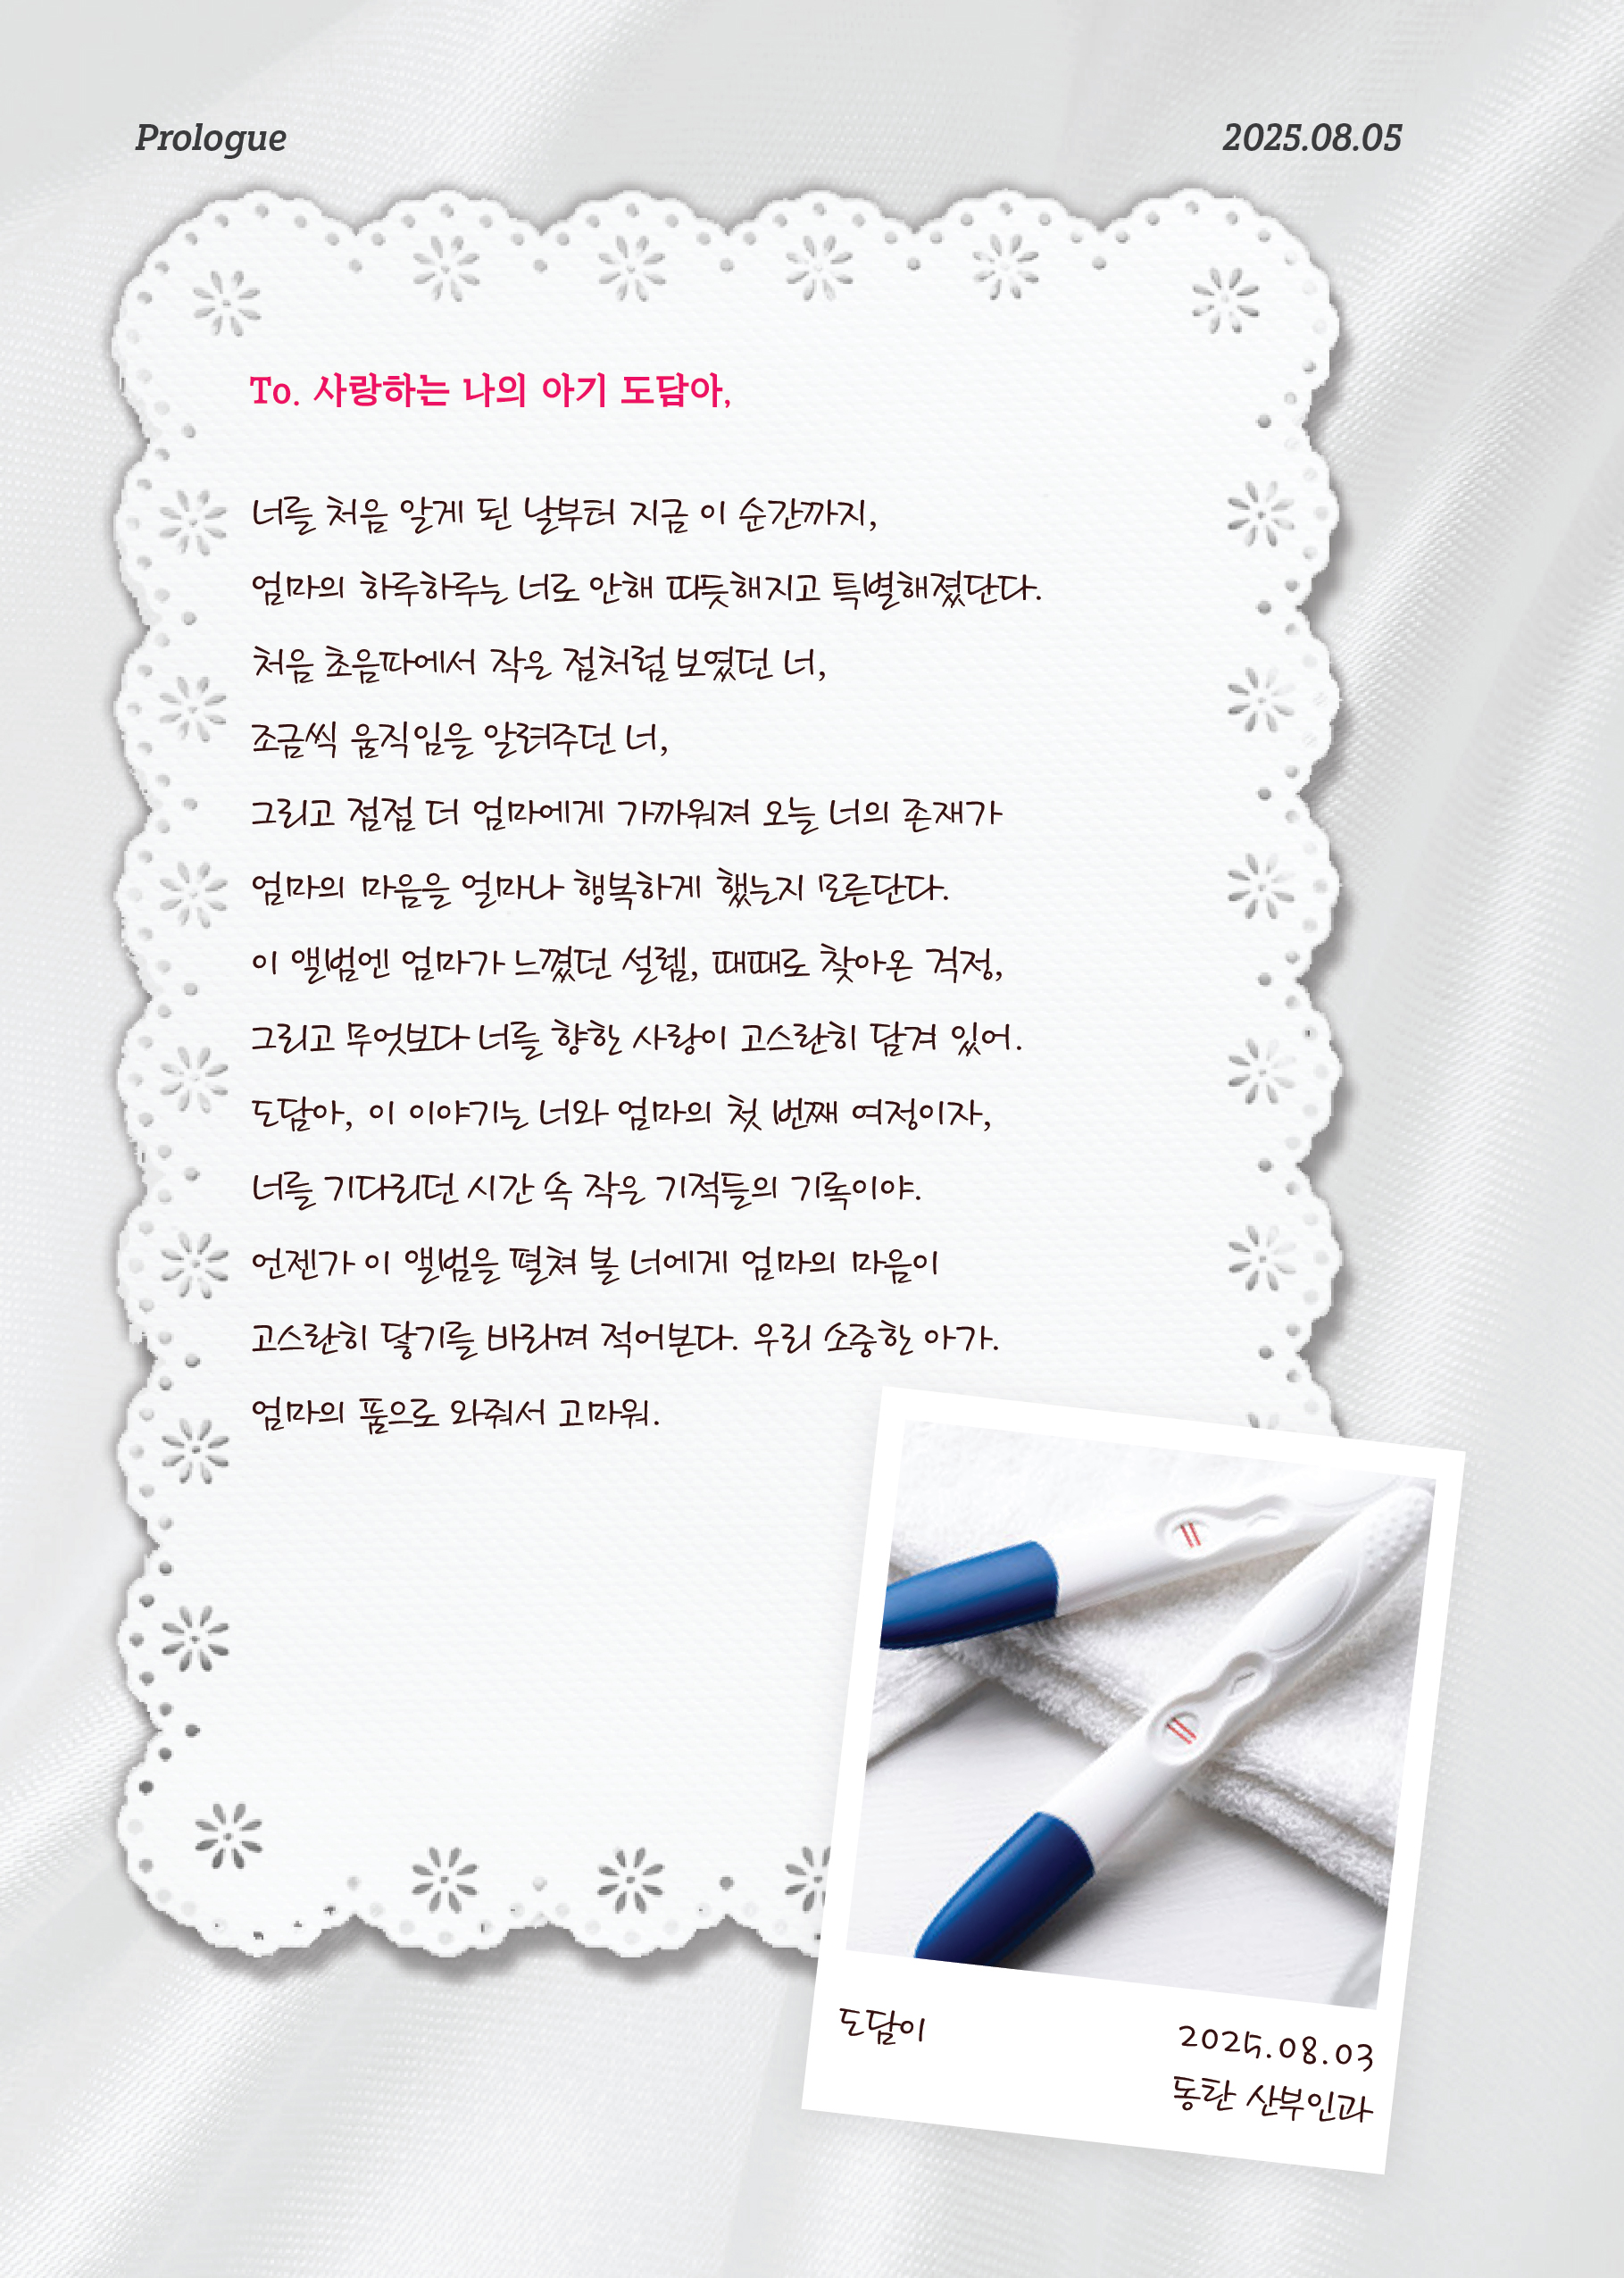 Prologue
2025.08.05
To. 사랑하는 나의 아기 도담아,
너를 처음 알게 된 날부터 지금 이 순간까지,
엄마의 하루하루는 너로 안해 따듯해지고 특별해졌단다.
처음 초음파에서 작은 점처럼 보였던 너,
조금씩 움직임을 알려주던 너,
그리고 점점 더 엄마에게 가까워져 오늘 너의 존재가
엄마의 마음을 얼마나 행복하게 했는지 모른단다.
이 앨범엔 엄마가 느꼈던 설렘, 때때로 찾아온 걱정,
그리고 무엇보다 너를 향한 사랑이 고스란히 담겨 있어.
도담아, 이 이야기는 너와 엄마의 첫 번째 여정이자,
너를 기다리던 시간 속 작은 기적들의 기록이야.
언젠가 이 앨범을 펼쳐 볼 너에게 엄마의 마음이
고스란히 닿기를 바래며 적어본다. 우리 소중한 아가.
엄마의 품으로 와줘서 고마워.
도담이
2025.08.03
동탄 산부인과